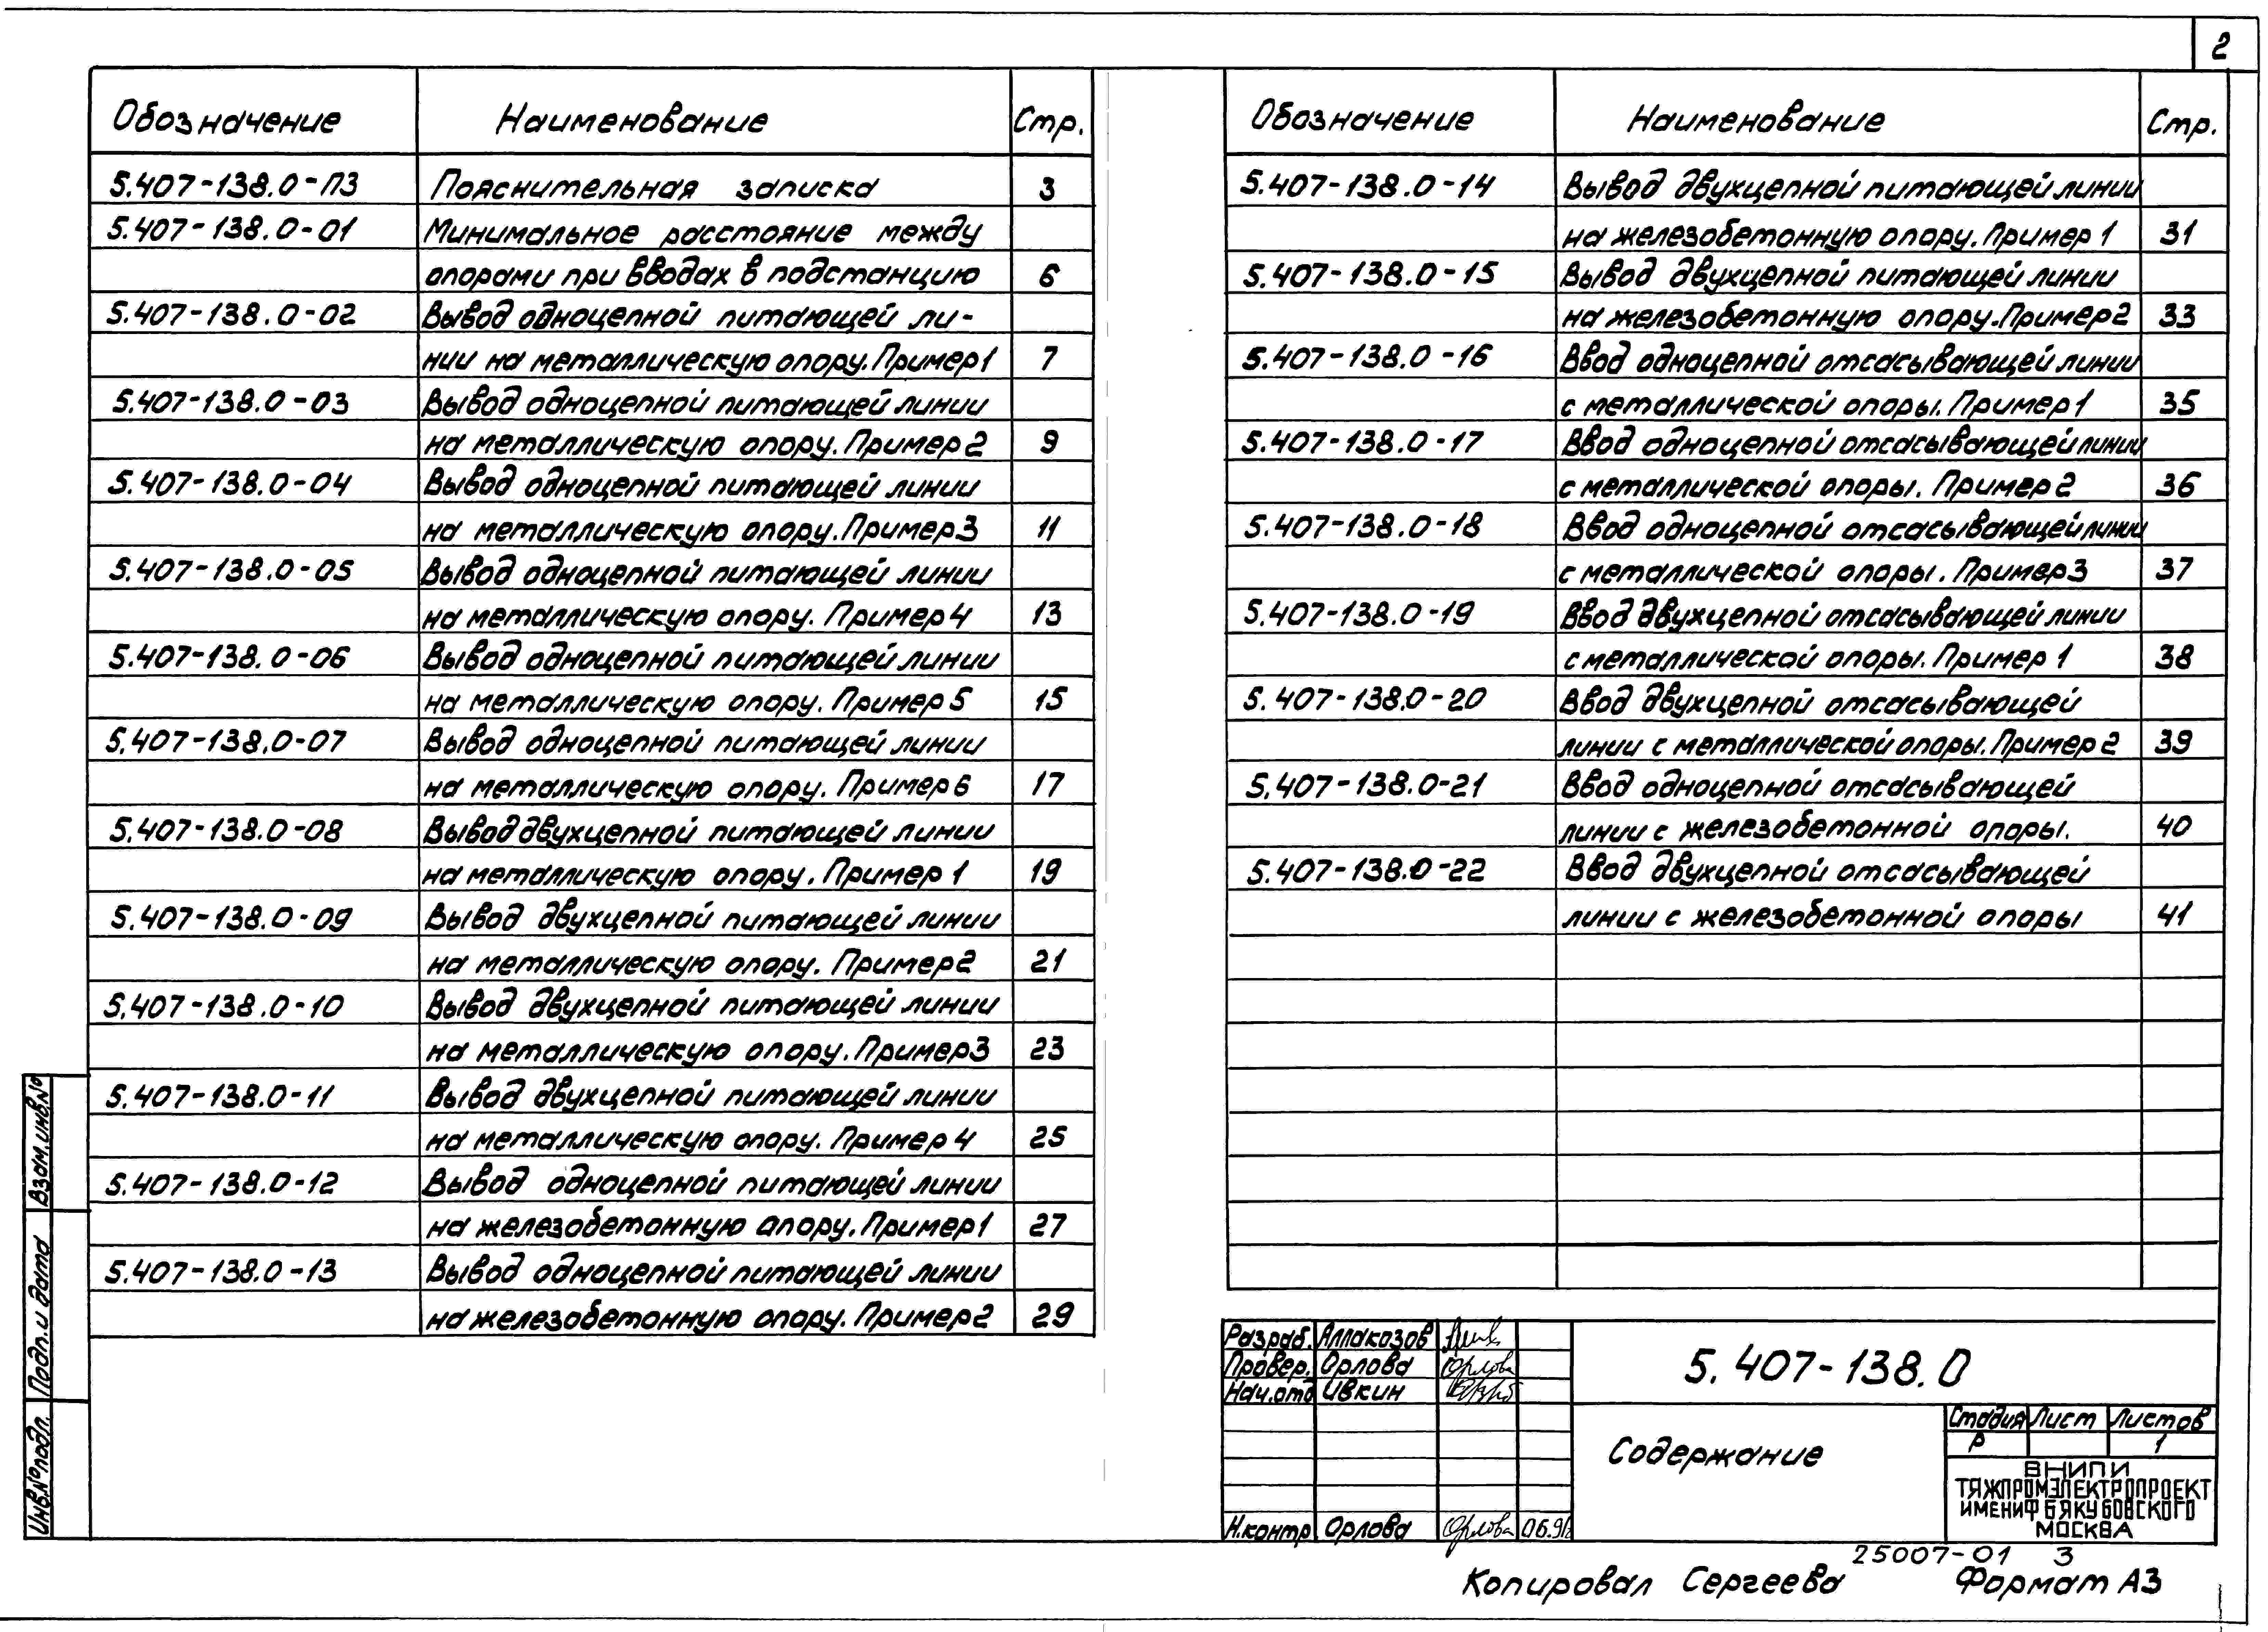 2
Обозначение Наименование Стр.
5.407-138.0-ПЗ Пояснительная записка 3
5.407-138.0-01 Минимальное расстояние между
опорами при вводах в подстанцию 6
5.407-138.0-02 Вывод одноцепной питающей ли-
нии на металлическую опору. Пример 1 7
5.407-138.0-03 Вывод одноцепной питающей линии
на металлическую опору. Пример 2 9
5.407-138.0-04 Вывод одноцепной питающей линии
на металлическую опору. Пример 3 11
5.407-138.0-05 Вывод одноцепной питающей линии
на металлическую опору. Пример 4 13
5.407-138.0-06 Вывод одноцепной питающей линии
на металлическую опору. Пример 5 15
5.407-138.0-07 Вывод одноцепной питающей линии
на металлическую опору. Пример 6 17
5.407-138.0-08 Вывод двухцепной питающей линии
на металлическую опору. Пример 1 19
5.407-138.0-09 Вывод двухцепной питающей линии
на металлическую опору. Пример 2 21
5.407-138.0-10 Вывод двухцепной питающей линии
на металлическую опору. Пример 3 23
5.407-138.0-11 Вывод двухцепной питающей линии
на металлическую опору. Пример 4 25
5.407-138.0-12 Вывод одноцепной питающей линии
на железобетонную опору. Пример 1 27
5.407-138.0-13 Вывод одноцепной питающей линии
на железобетонную опору. Пример 2 29
Обозначение Наименование Стр.
5.407-138.0-14 Вывод двухцепной питающей линии
на железобетонную опору. Пример 1 31
5.407-138.0-15 Вывод двухцепной питающей линии
на железобетонную опору. Пример 2 33
5.407-138.0-16 Ввод одноцепной отсасывающей линии
с металлической опоры. Пример 1 35
5.407-138.0-17 Ввод одноцепной отсасывающей линии
с металлической опоры. Пример 2 36
5.407-138.0-18 Ввод одноцепной отсасывающей линии
с металлической опоры. Пример 3 37
5.407-138.0-19 Ввод двухцепной отсасывающей линии
с металлической опоры. Пример 1 38
5.407-138.0-20 Ввод двухцепной отсасывающей
линии с металлической опоры. Пример 2 39
5.407-138.0-21 Ввод одноцепной отсасывающей
линии с железобетонной опоры. 40
5.407-138.0-22 Ввод двухцепной отсасывающей
линии с железобетонной опоры 41
Взам.инв.№
Подп. и дата
Инв.№подл.
Разраб. Аллакозов
Провер. Орлова Орлова
Нач.отд Ивкин
Н.контр. Орлова Орлова
5.407-138.0
Содержание
Стадия Лист Листов
Р 1
ВНИПИ
ТЯЖПРОМЭЛЕКТРОПРОЕКТ
ИМЕНИ Ф Б ЯКУБОВСКОГО
МОСКВА
25007-01 3
Копировал Сергеева Формат А3